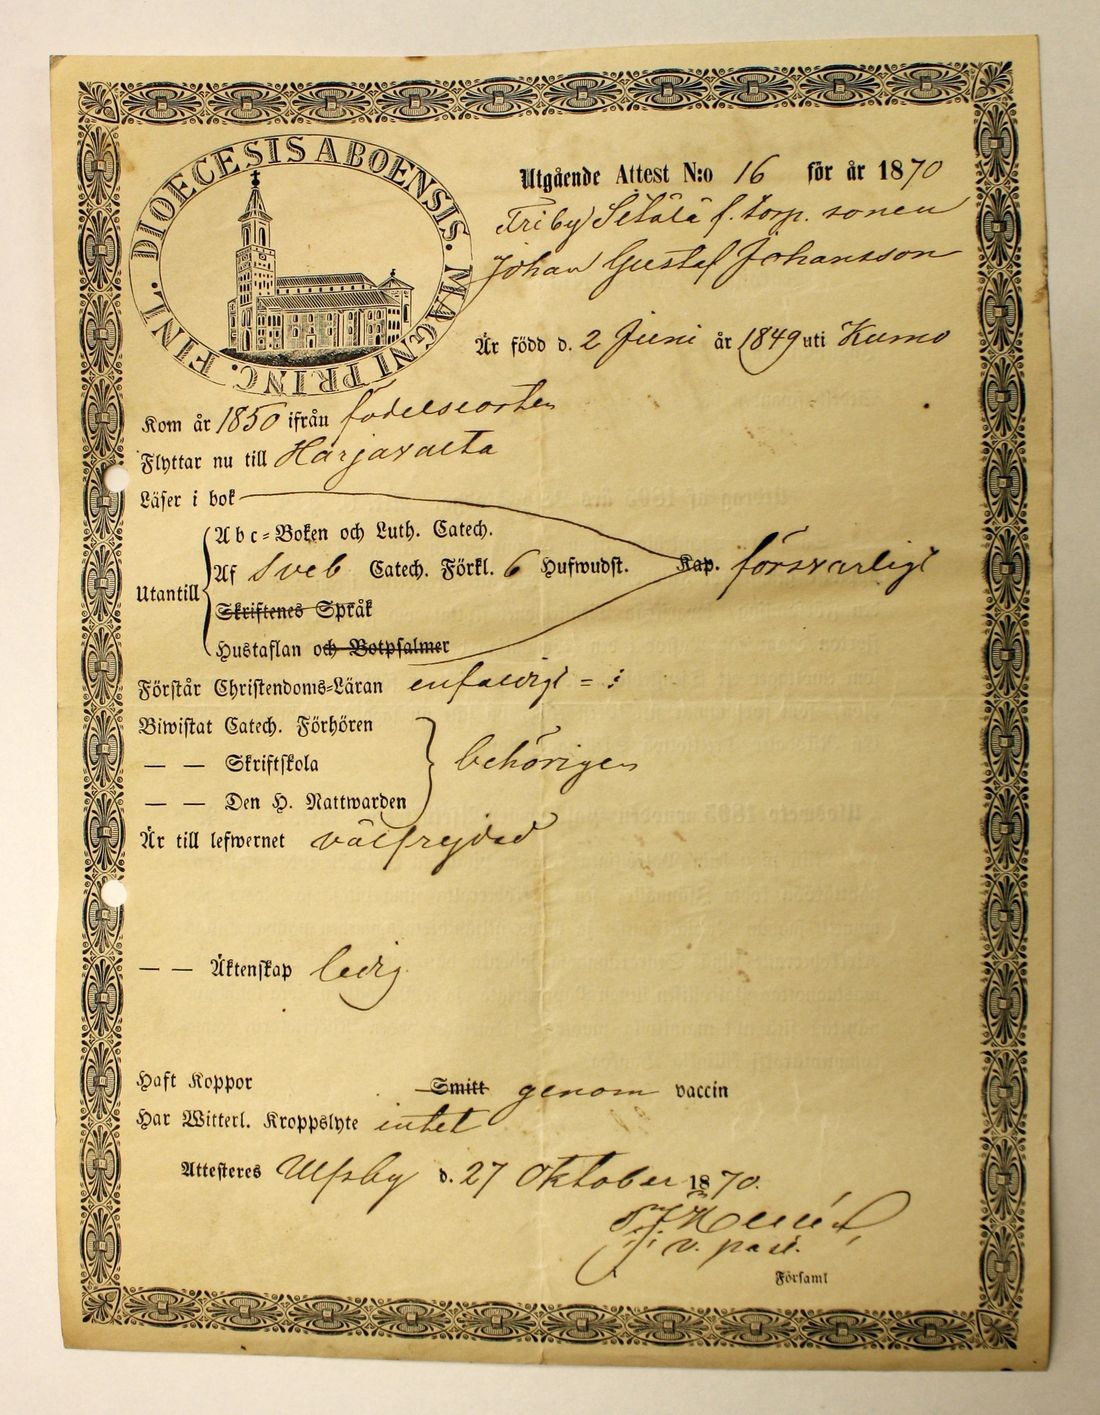 DIOECESIS ABOENSIS. MAGNI PRINC. FINL.
Utgående Attest N:o 16 för år 1870
Friby Sëtälä f. torp. sonen
Johan Gustaf Johansson
Är född d. 2 Juni år 1849 uti Kumo
Kom år 1850 ifrån födelseorten
Flyttar nu till Harjavalta
Läser i bok
Abc-Boken och Luth. Catech.
Utantill Af Sveb Catech. Förkl. 6 Hufwudst. Kap. försvarligt
Skriftenes Språk
Hustaflan och Botpsalmer
Förstår Christendoms-Läran enfaldigt = :
Biwistat Catech. Förhören
— — Skriftskola behörigen
— — Den H. Nattwarden
Är till lefwernet välfrejdad
— — Äktenskap ledig
Haft Koppor Smitt genom vaccin
Har Witterl. Kroppslyte intet
Attesteres Ulfsby d. 27 Oktober 1870.
v. past.
Församl